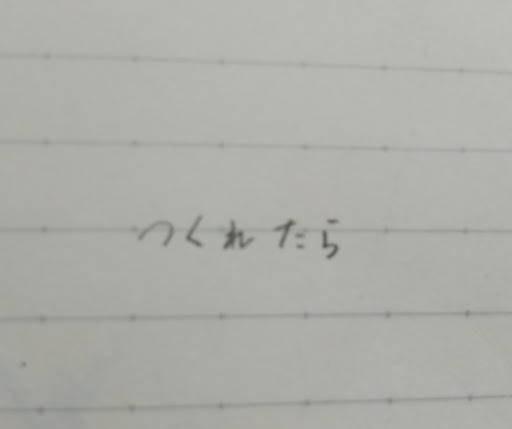 つくれたら